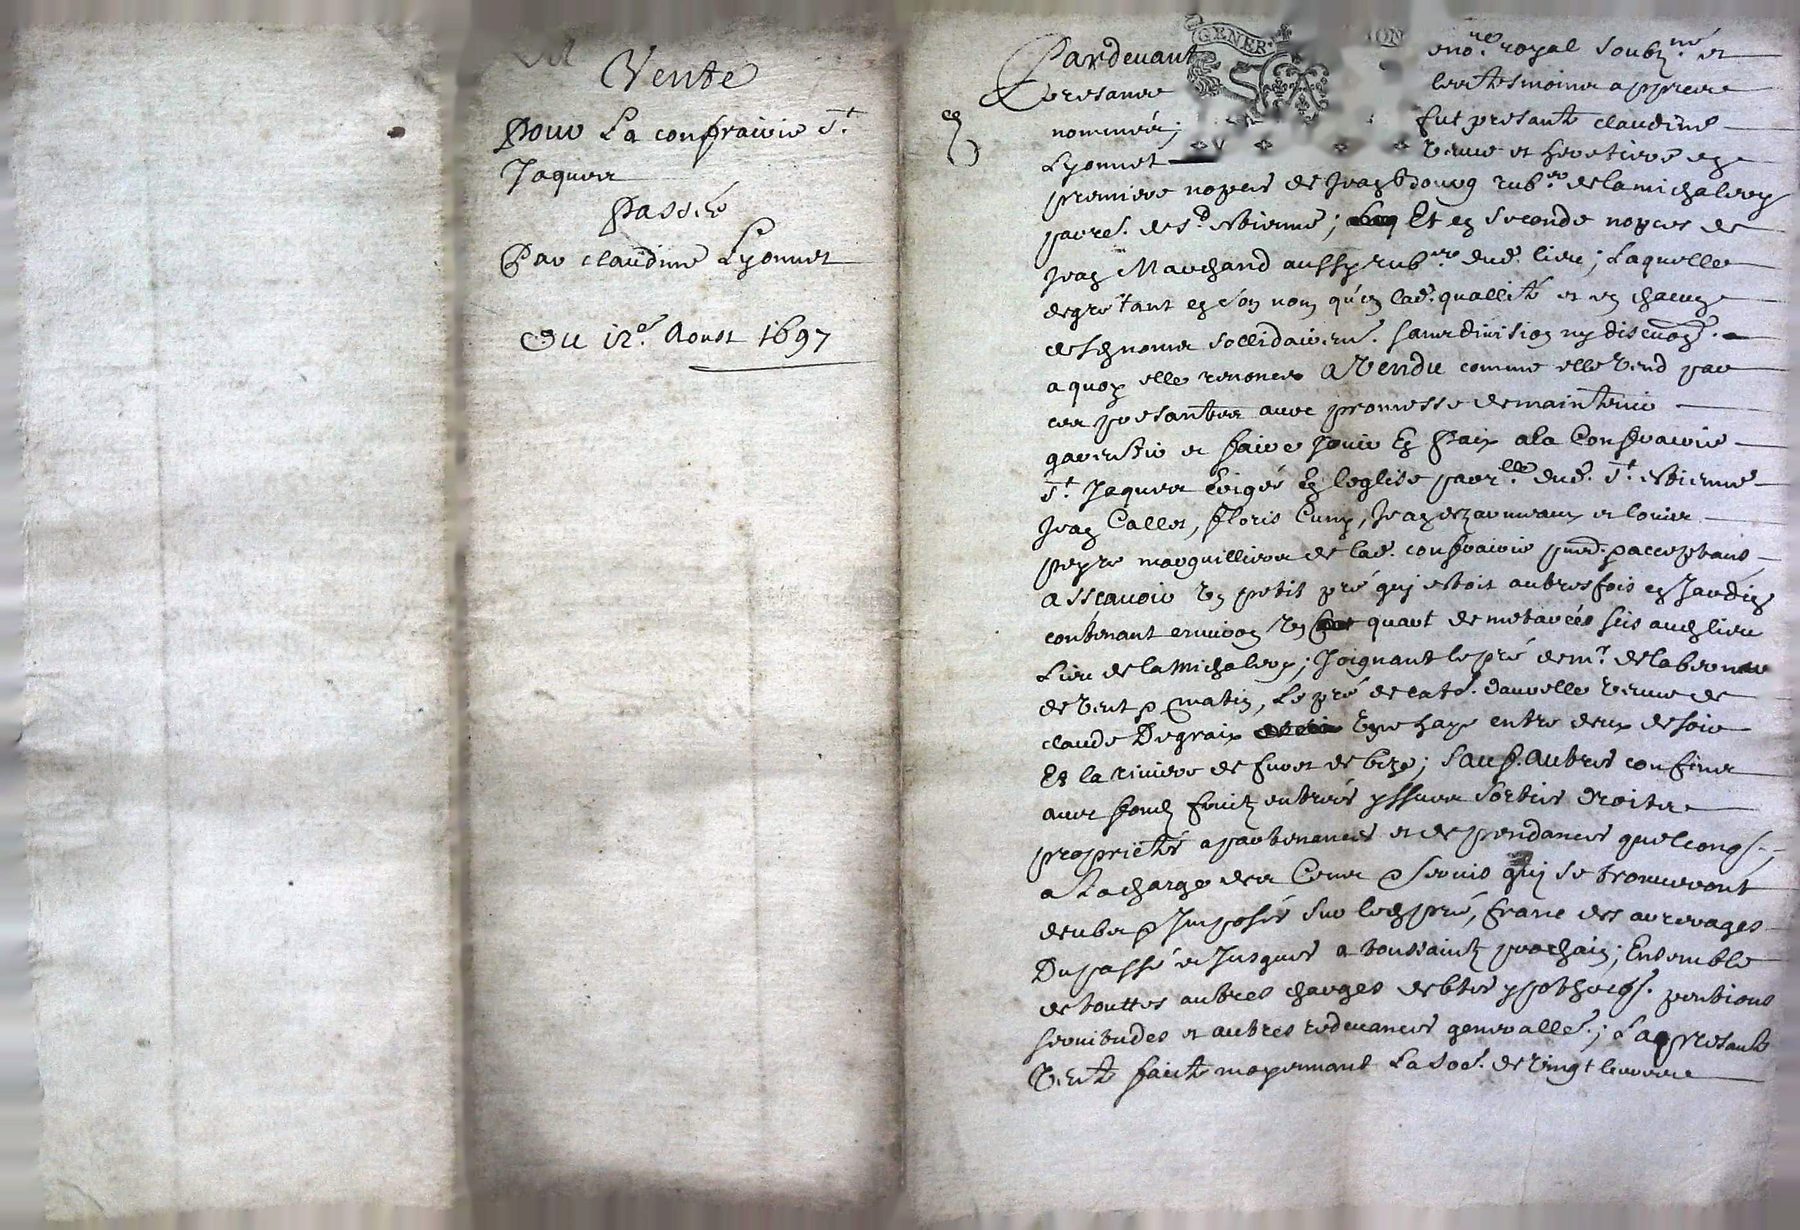 Vente
Pour La confrairie St
Jaques
Passée
Par claudine Lyonnet
Du 12e. Aoust 1697
GENER ION
Pardevant no.re royal soubz.né et
presance les tesmoins appres
nommés; fut presante claudine
Lyonnet vefve et heretiere en
premiere nopces de Jean rub.er de la michaliere
parre. de St. Estienne; Et en seconde nopces de
Jean Marchand aussy rub.er dud. lieu; Laquelle
de gré tant en son nom qu'en lad. quallité et en chacung
desd. noms sollidairem. sans division ny discution.
a quoy elle renonce a Vendu comme elle vend par
ces presantes avec promesse de maintenir
garentir et faire jouir En Paix a la Confrairie
St. Jaques Erigée En leglise parr.lle dud. St. Estienne
Jean Callet, floris Cuny, Jean et louis
peyre marguilliers de lad. confrairie p acceptans
a sscavoir Un petit pré quy estoit autresfois en Jardin
contenant environ Un quart de metarées sis aud. lieu
Lieu de la Michaliere; Joignant le pré de mr. de la
de vent & matin, Le pré de cat. vefve de
claude Degraix Une haye entre deux de soir
Et la riviere de furet de bize; sauf autres confins
avec fondz fruitz entrées yssues sorties droitz
proprietés apartenances et despendances quelconq.;
a La charge des Cens & servis quy se trouveront
deubz & Imposés sur led. pré, franc des arrerages
Du passé et Jusques a toussaintz prochain; Ensemble
de touttes autres charges debtes ypotheq. pentions
servitudes et autres redevances generalle.; La presante
Vente faicte moyennant La so.e de vingt livres